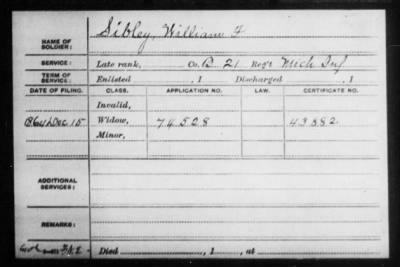 NAME OF SOLDIER: Sibley, William F
SERVICE: Late rank, Co. B. 21 Reg't Mich Inf
TERM OF SERVICE: Enlisted , 1 Discharged , 1
DATE OF FILING. CLASS. APPLICATION NO. LAW. CERTIFICATE NO.
Invalid,
1864 Dec 15 Widow, 74528 43382
Minor,
ADDITIONAL SERVICES:
REMARKS:
Died , 1 , at